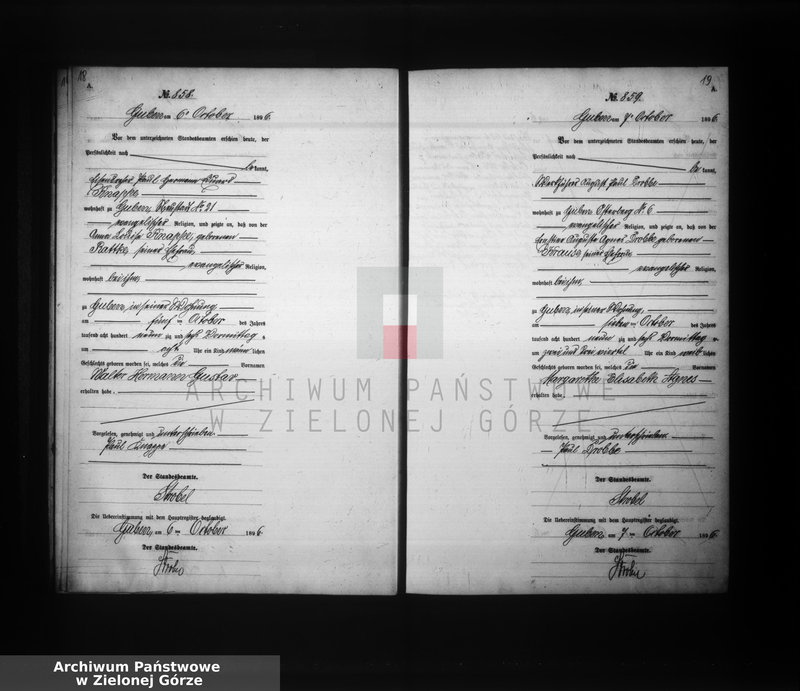 18
A.
№. 858.
Guben am 6. October 1896.
Vor dem unterzeichneten Standesbeamten erschien heute, der
Persönlichkeit nach
be kannt,
Paul Hermann
Knappe
wohnhaft zu Guben, Neustadt Nr. 21
evangelischer Religion, und zeigte an, daß von der
Anna Louise Knappe, geborenen
Rattke, seiner Ehefrau,
evangelischer Religion,
wohnhaft bei ihm,
zu Guben, in seiner Wohnung
am fünf ten October des Jahres
tausend acht hundert neun zig und sechs Vormittag s
um acht Uhr ein Kind männ lichen
Geschlechts geboren worden sei, welches die Vornamen
Walter Hermann Gustav
erhalten habe.
Vorgelesen, genehmigt und unterschrieben
Paul Knappe
Der Standesbeamte.
Strobel
Die Uebereinstimmung mit dem Hauptregister beglaubigt.
Guben, am 6 ten October 1896.
Der Standesbeamte.
19
A.
№. 859.
Guben am 7. October 1896.
Vor dem unterzeichneten Standesbeamten erschien heute, der
Persönlichkeit nach
be kannt,
August Paul Drobbe
wohnhaft zu Guben, Osterberg Nr. 6
evangelischer Religion, und zeigte an, daß von der
Auguste Agnes Drobbe geborenen
Krause, seiner Ehefrau
evangelischer Religion,
wohnhaft bei ihm,
zu Guben, in seiner Wohnung
am sieben ten October des Jahres
tausend acht hundert neun zig und sechs Vormittag s
um zwei und drei viertel Uhr ein Kind weib lichen
Geschlechts geboren worden sei, welches die Vornamen
Margarethe Elisabeth Agnes
erhalten habe.
Vorgelesen, genehmigt und unterschrieben
Paul Drobbe
Der Standesbeamte.
Strobel
Die Uebereinstimmung mit dem Hauptregister beglaubigt.
Guben, am 7 ten October 1896.
Der Standesbeamte.
ARCHIWUM PAŃSTWOWE
W ZIELONEJ GÓRZE
Archiwum Państwowe
w Zielonej Górze